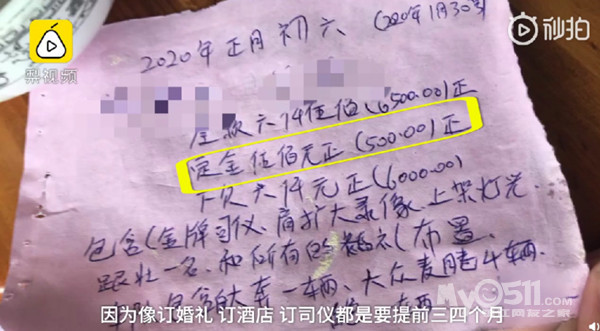 梨视频
秒拍
2020年正月初六 (2020年1月30号)
全款六仟伍佰(6500.00)正
定金伍佰元正(500.00)正
下欠六仟元正(6000.00)
包含(金牌司仪、肩扛大录像、上架灯光、
跟妆一名、和所有的婚礼(布置、
包含头车一辆、大众麦腾4辆.
因为像订婚礼 订酒店 订司仪都是要提前三四个月
My0511.com
江网友之家